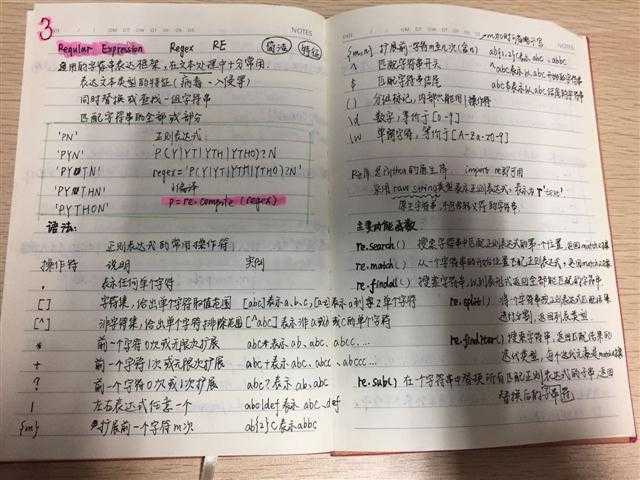 3
Regular Expression Regex RE 简洁 特征
通用的字符串表达框架,在文本处理中十分常用.
表达文本类型的特征(病毒、入侵等)
同时替换或查找一组字符串
匹配字符串的全部或部分
'PN' 正则表达式
'PYN' P(Y|YT|YTH|YTHO)?N
'PYTN' regex='P(Y|YT|YTH|YTHO)?N'
'PYTHN' 编译
'PYTHON' p=re.compile(regex)
语法:
正则表达式的常用操作符:
操作符 说明 实例
. 表示任何单个字符
[ ] 字符集,给出单个字符取值范围 [abc]表示a、b、c,[a-z]表示a到z单个字符
[^ ] 非字符集,给出单个字符排除范围 [^abc]表示非a或b或c的单个字符
* 前一个字符0次或无限次扩展 abc*表示ab、abc、abcc、...
+ 前一个字符1次或无限次扩展 abc+表示abc、abcc、abccc...
? 前一个字符0次或1次扩展 abc?表示ab、abc
| 左右表达式任意一个 abc|def表示abc、def
{m} 扩展前一个字符m次 ab{2}C表示abbc
DATE NOTES
{m,n} 扩展前一字符m至n次(含n) ab{1,2}c表示abc、abbc
^ 匹配字符串开头 ^abc表示以abc开头的字符串
$ 匹配字符串结尾 abc$表示以abc结尾的字符串
( ) 分组标记,内部只能用|操作符
\d 数字,等价于[0-9]
\w 单词字符,等价于[A-Za-z0-9_]
Re库是Python的原生库. import re即可用
采用raw string类型表示正则表达式,表示为r'text'
原生字符串,不包含转义符的字符串.
主要功能函数
re.search() 搜索字符串中匹配正则表达式的第一个位置,返回match对象
re.match() 从一个字符串的开始位置匹配正则表达式,返回match对象
re.findall() 搜索字符串,以列表类型返回全部能匹配的字符串.
re.split() 将一个字符串按正则表达式匹配结果
进行分割,返回列表类型
re.finditer() 搜索字符串,返回匹配结果的
迭代类型,每个迭代元素是match对象
re.sub() 在一个字符串中替换所有匹配正则表达式的子串,返回
替换后的字符串